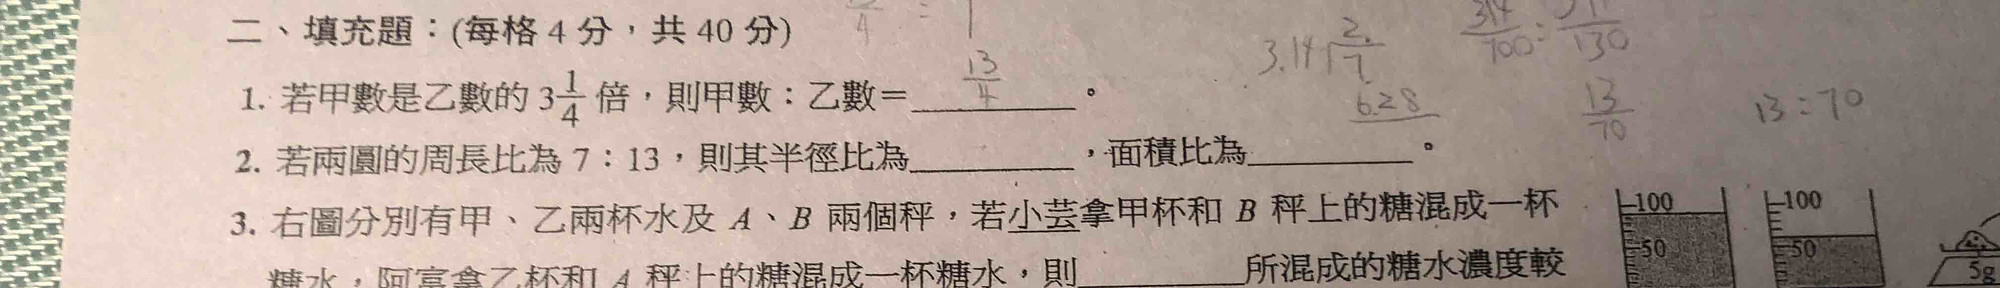 二、填充題：(每格 4 分，共 40 分)
1. 若甲數是乙數的 3 1/4 倍，則甲數：乙數＝ 13/4 。
2. 若兩圓的周長比為 7：13，則其半徑比為________，面積比為________。
3. 右圖分別有甲、乙兩杯水及 A、B 兩個秤，若小芸拿甲杯和 B 秤上的糖混成一杯
糖水，阿富拿乙杯和 A 秤上的糖混成一杯糖水，則________所混成的糖水濃度較
3.14 2. 7
6.28
314/700 :
130
13/70
13:70
100
50
100
50
5g